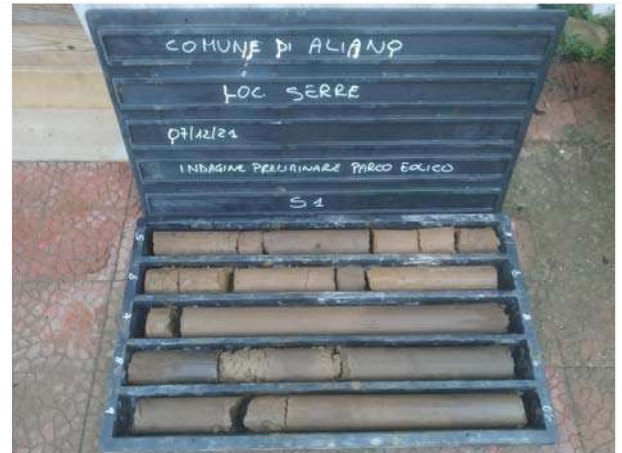 COMUNE DI ALIANO
LOC. SERRE
07/12/21
INDAGINE PRELIMINARE PARCO EOLICO
S1
5
6
7
8